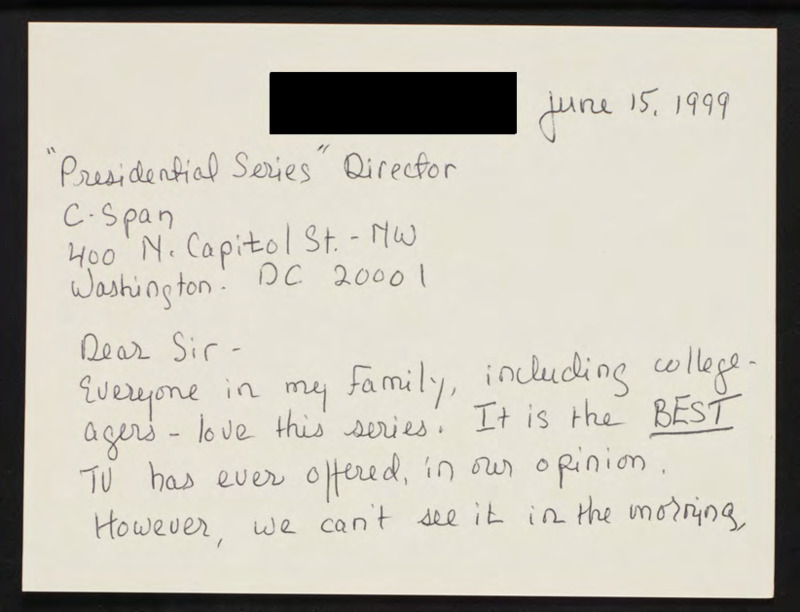 June 15, 1999
"Presidential Series" Director
C-Span
400 N. Capitol St. - NW
Washington. DC 20001
Dear Sir -
Everyone in my family, including college-
agers - love this series. It is the BEST
TV has ever offered, in our opinion.
However, we can't see it in the morning,